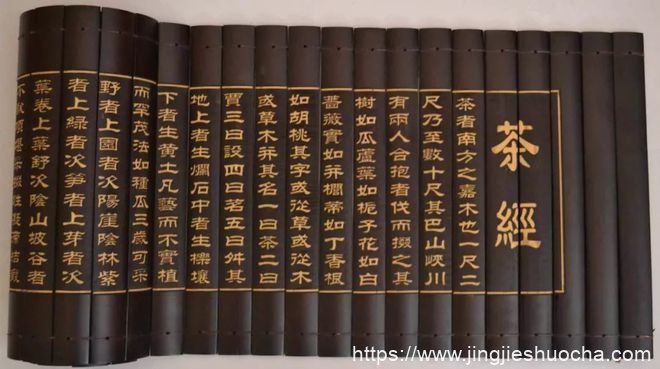 茶經
茶者南方之嘉木也一尺二
尺乃至數十尺其巴山峽川
有兩人合抱者伐而掇之其
樹如瓜蘆葉如梔子花如白
薔薇實如并櫚蒂如丁香根
如胡桃其字或從草或從木
或草木并其名一曰茶二曰
賈三曰設四曰茗五曰舛其
地上者生爛石中者生櫟壤
下者生黄土凡藝而不實植
而罕茂法如種瓜三歲可采
野者上園者次陽崖陰林紫
者上綠者次笋者上芽者次
葉卷上葉舒次陰山坡谷者
https://www.jingjieshuocha.com